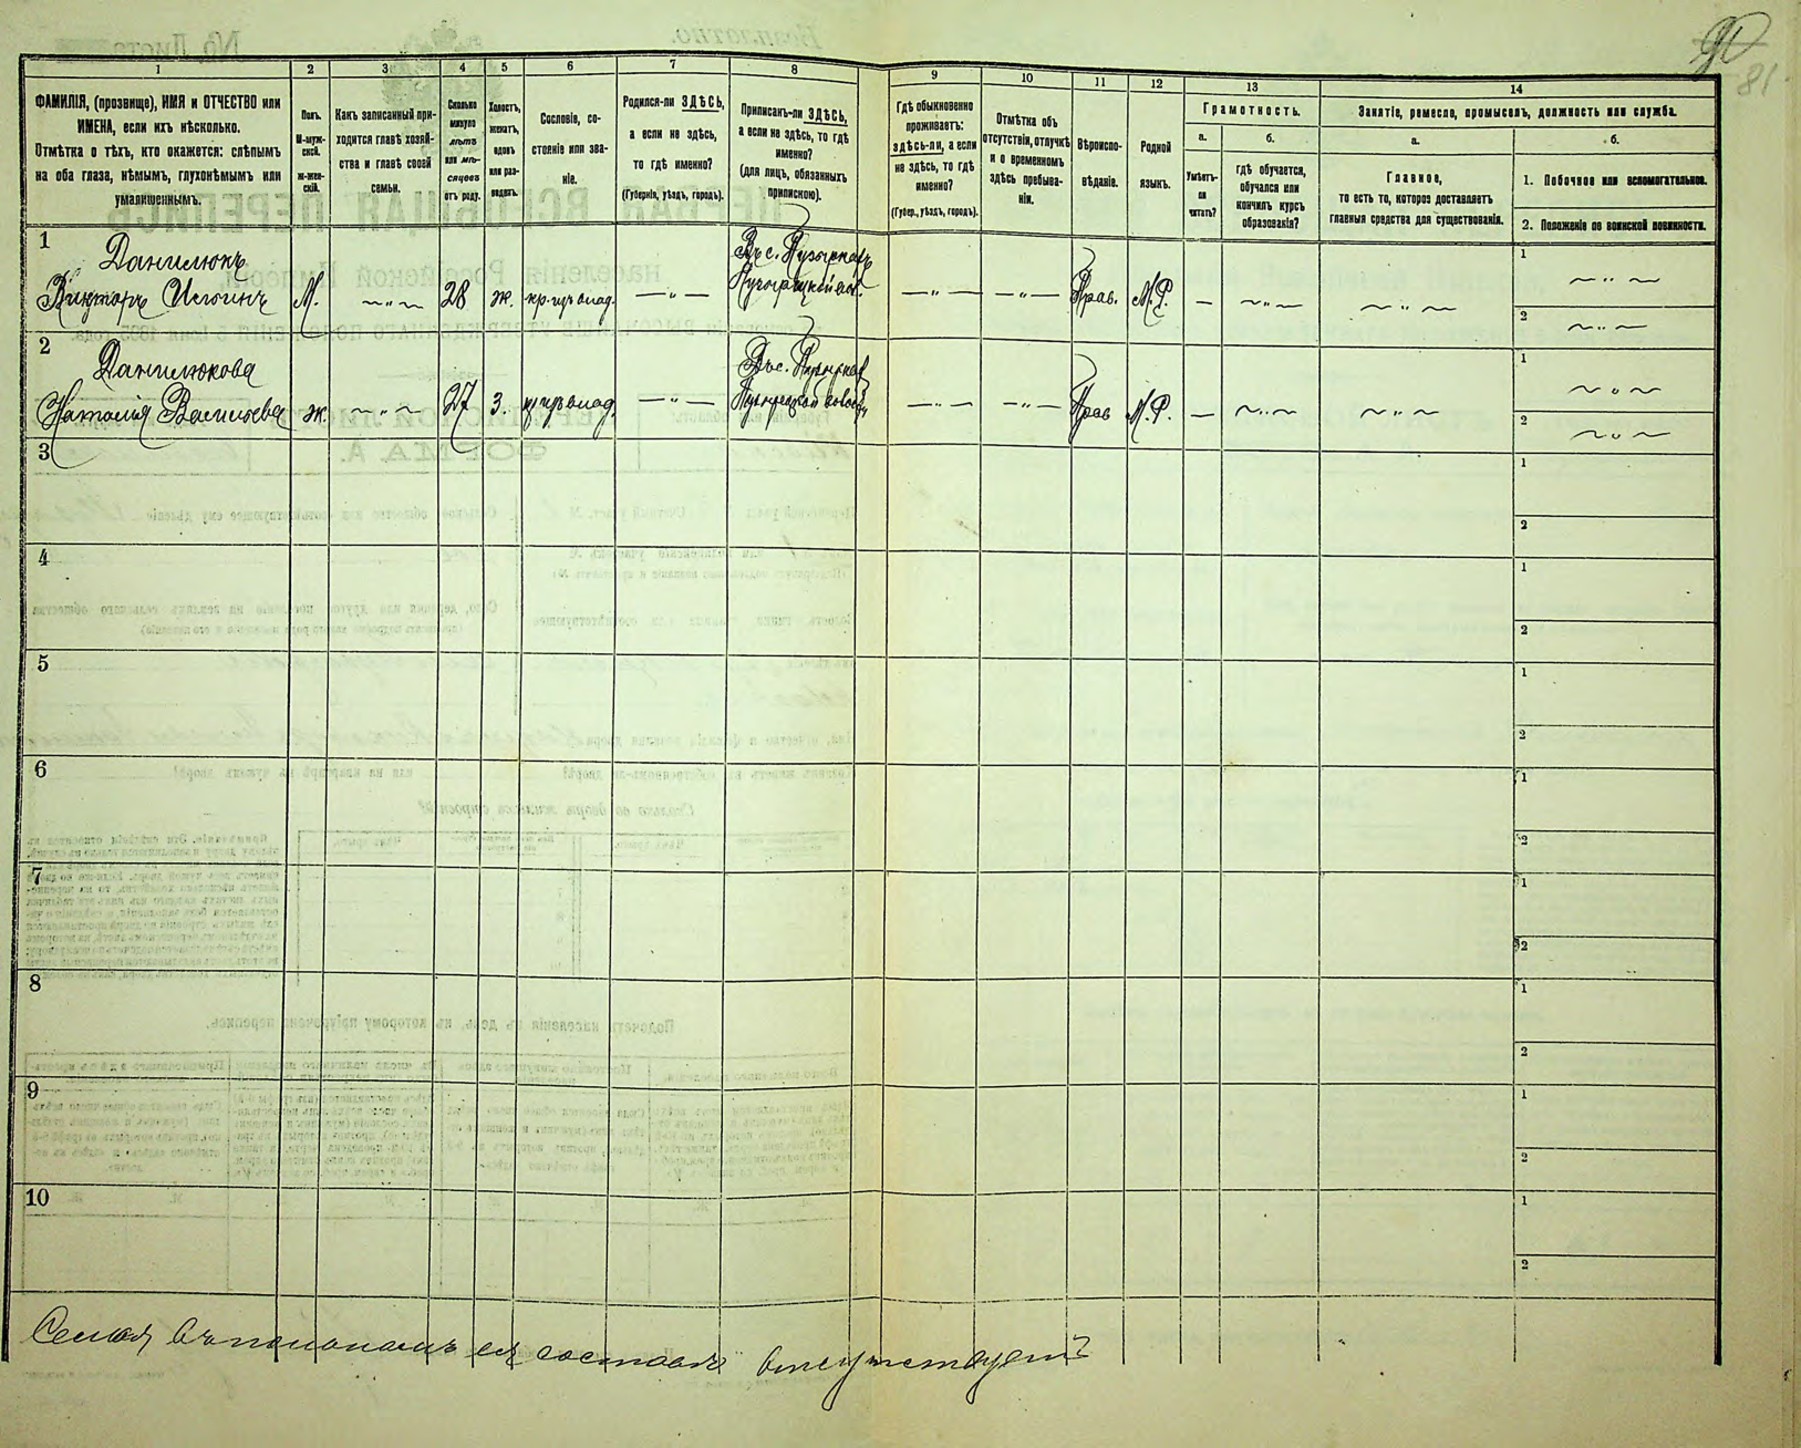 90
81
1
2
3
4
5
6
7
8
9
10
11
12
13
14
ФАМИЛІЯ, (прозвище), ИМЯ и ОТЧЕСТВО или
ИМЕНА, если ихъ нѣсколько.
Отмѣтка о тѣхъ, кто окажется: слѣпымъ
на оба глаза, нѣмымъ, глухонѣмымъ или
умалишеннымъ.
Полъ.
М-муж-
ской.
ж-жен-
скій.
Какъ записанный при-
ходится главѣ хозяй-
ства и главѣ своей
семьи.
Сколько
минуло
лѣтъ
или мѣ-
сяцевъ
отъ роду.
Холостъ,
женатъ,
вдовъ
или раз-
веденъ.
Сословіе, со-
стояніе или зва-
ніе.
Родился-ли ЗДѢСЬ,
а если не здѣсь,
то гдѣ именно?
(Губернія, уѣздъ, городъ).
Приписанъ-ли ЗДѢСЬ,
а если не здѣсь, то гдѣ
именно?
(для лицъ, обязанныхъ
припискою).
Гдѣ обыкновенно
проживаетъ:
здѣсь-ли, а если
не здѣсь, то гдѣ
именно?
(Губер., уѣздъ, городъ).
Отмѣтка объ
отсутствіи, отлучкѣ
и о временномъ
здѣсь пребыва-
ніи.
Вѣроиспо-
вѣданіе.
Родной
языкъ.
Грамотность.
а.
б.
Умѣетъ-
ли
читать?
гдѣ обучается,
обучался или
кончилъ курсъ
образованія?
Занятіе, ремесло, промыселъ, должность или служба.
а.
б.
Главное,
то есть то, которое доставляетъ
главныя средства для существованія.
1. Побочное или вспомогательное.
2. Положеніе по воинской повинности.
1
Данилюкъ
Викторъ
М.
28
ж.
кр. изъ влад.
Въ с.
Прав.
М.Р.
1
2
2
Данилюкова
Наталія Васильева
ж.
27
З.
Въ с.
Прав
М.Р.
1
2
3
1
2
4
1
2
5
1
2
6
1
2
7
1
2
8
1
2
9
1
2
10
1
2
Семья въ полномъ ея составѣ отсутствуетъ